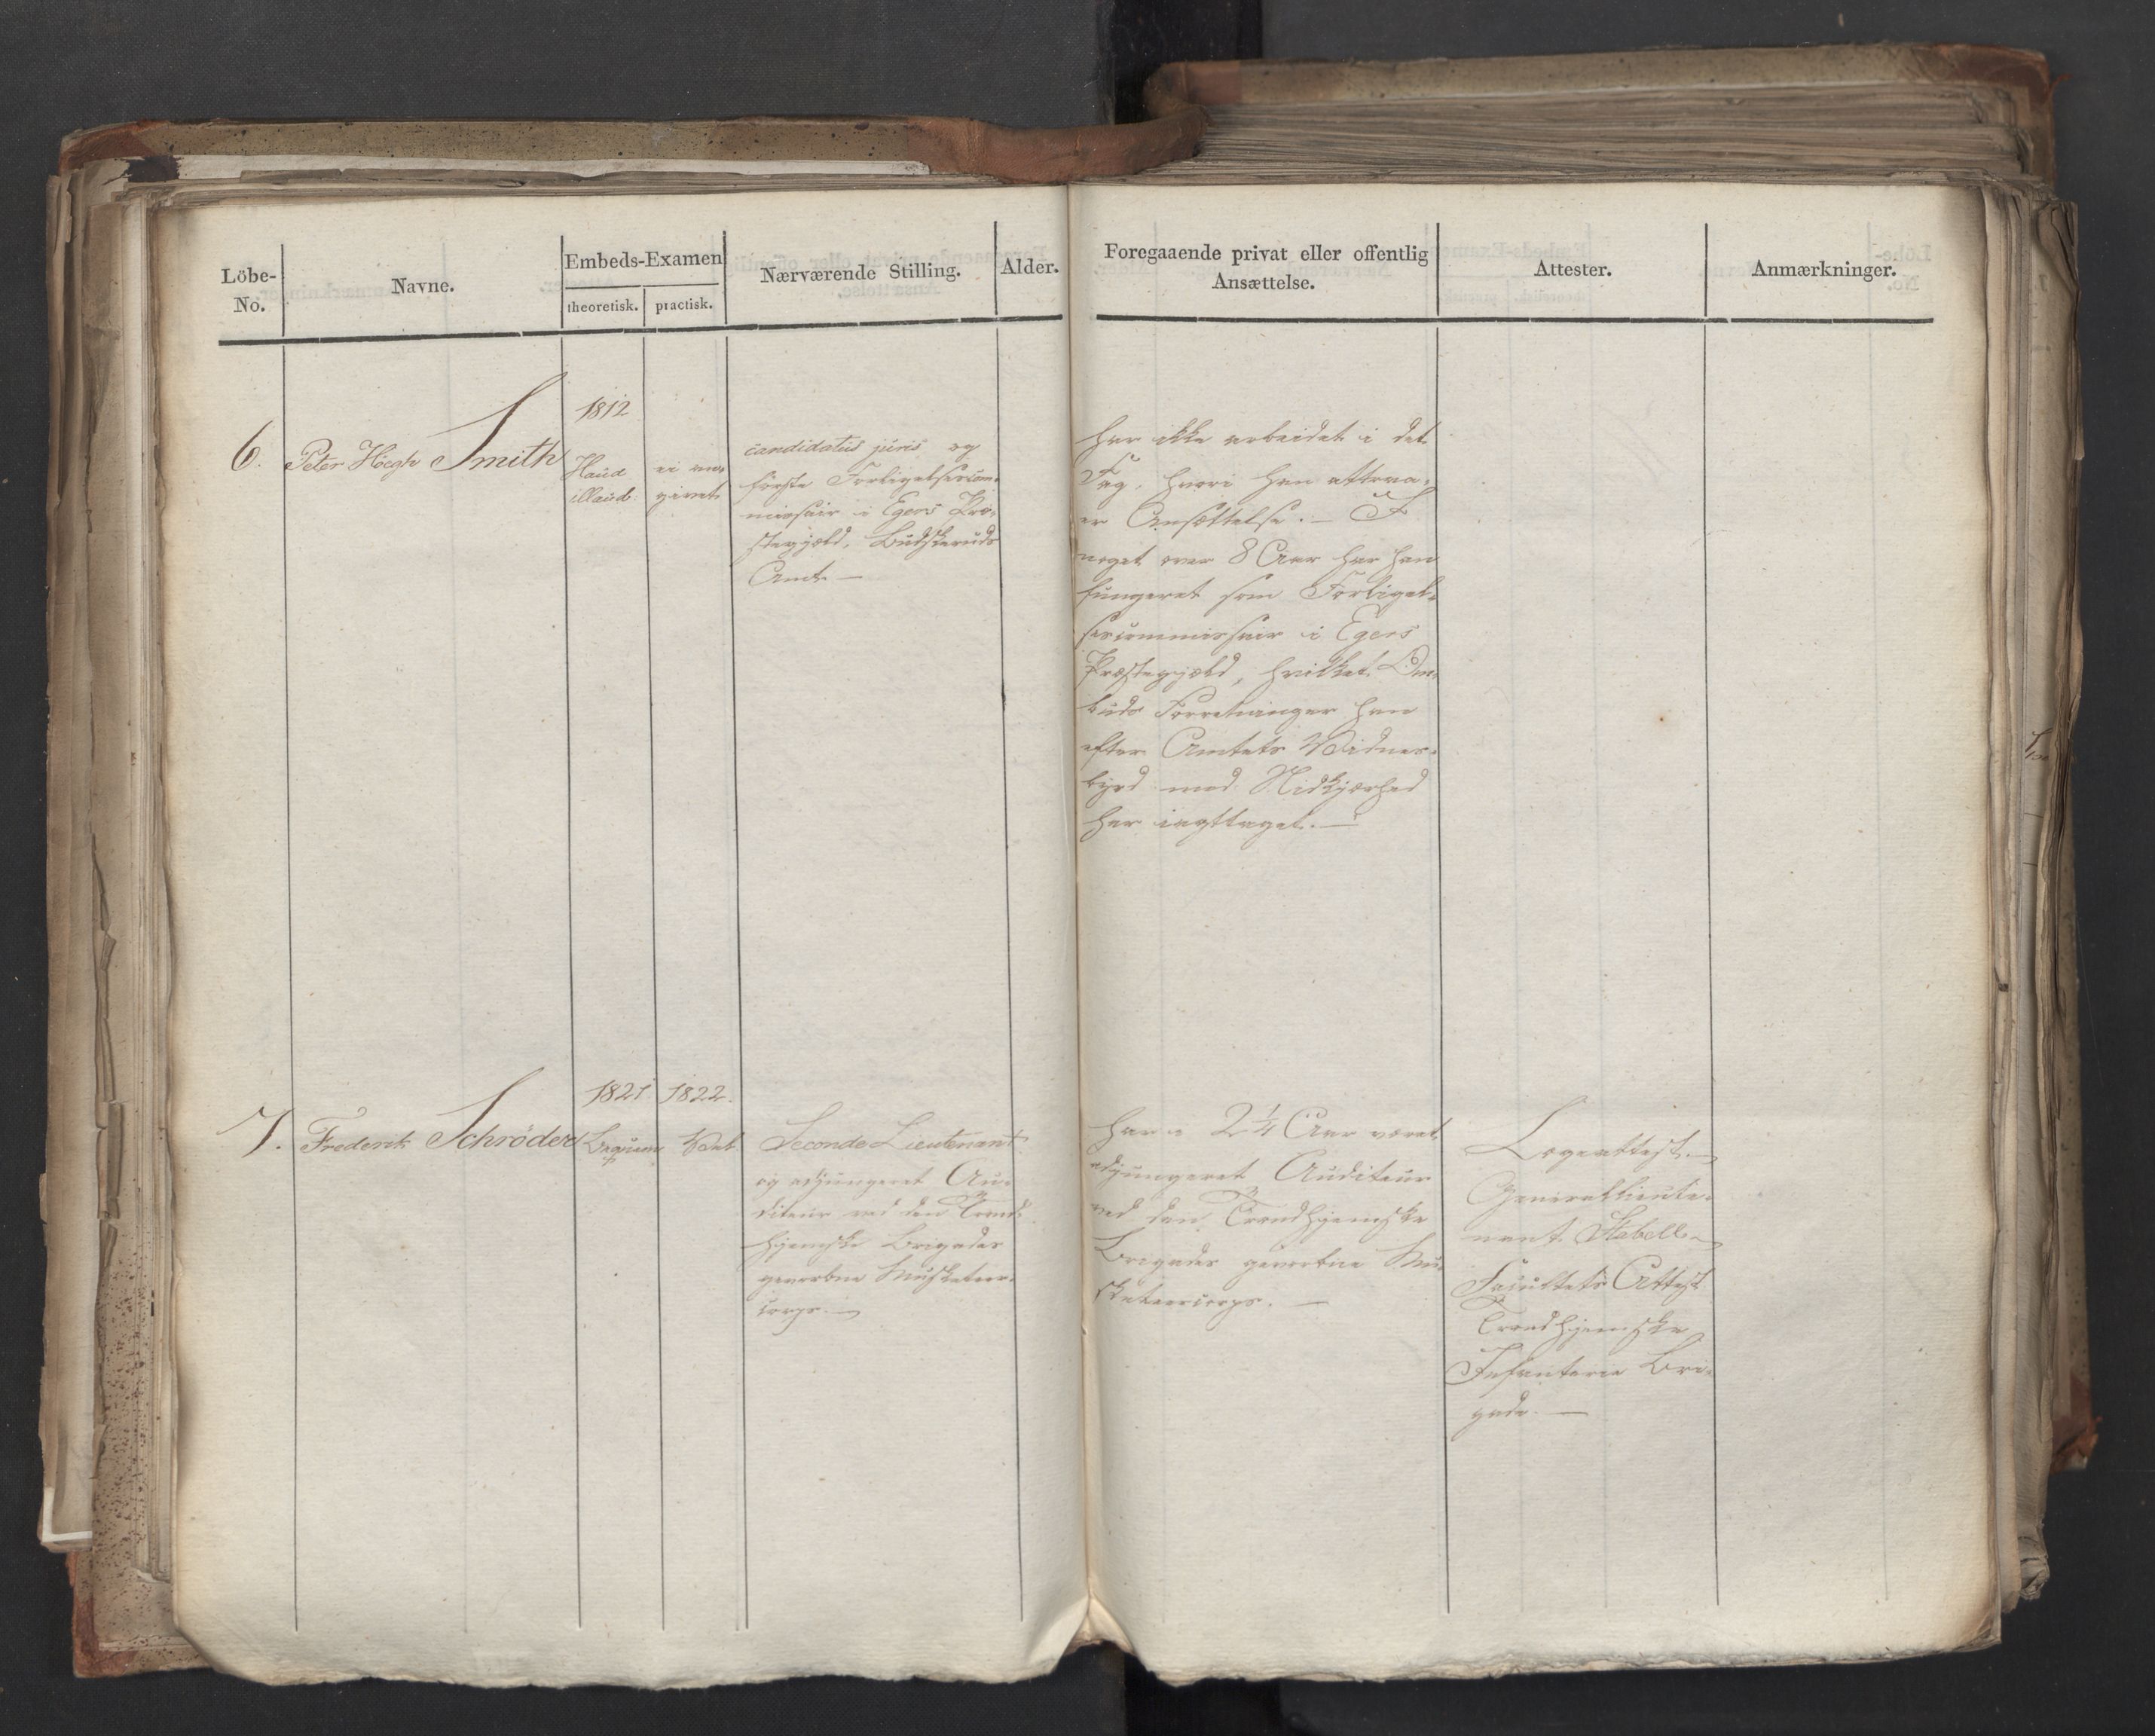 Löbe-
No.
Navne.
Embeds-Examen
theoretisk. practisk.
Nærværende Stilling.
Alder.
Foregaaende privat eller offentlig
Ansættelse.
Attester.
Anmærkninger.
6.
Peter Höegh Smith
1812
Haud
illaud.
ei an-
givet
candidatus juris og
første Forligelsescom-
missair i Egers Præ-
stegjæld, Budskeruds
Amt. —
har ikke arbeidet i det
Fag, hvori han attraa-
er Ansættelse. — I
noget over 8 Aar har han
fungeret som Forligel-
sescommissair i Egers
Præstegjæld, hvilket Om-
buds Forretninger han
efter Amtets Vidnes-
byrd med Nidkjærhed
har iagttaget. —
7.
Frederik Schröder
1821
Beqvem
1822.
Vel
Seconde Lieutenant
og adjungeret Au-
diteur ved den Trond-
hjemske Brigades
gevorbne Musketeer-
corps. —
har i 2 1/4 Aar været
adjungeret Auditeur
ved den Trondhjemske
Brigades gevorbne Mu-
sketeercorps. —
Lageattest. —
Generallieute-
nant Stabell —
Facultets Attest
Trondhjemske
Infanterie Bri-
gade. —